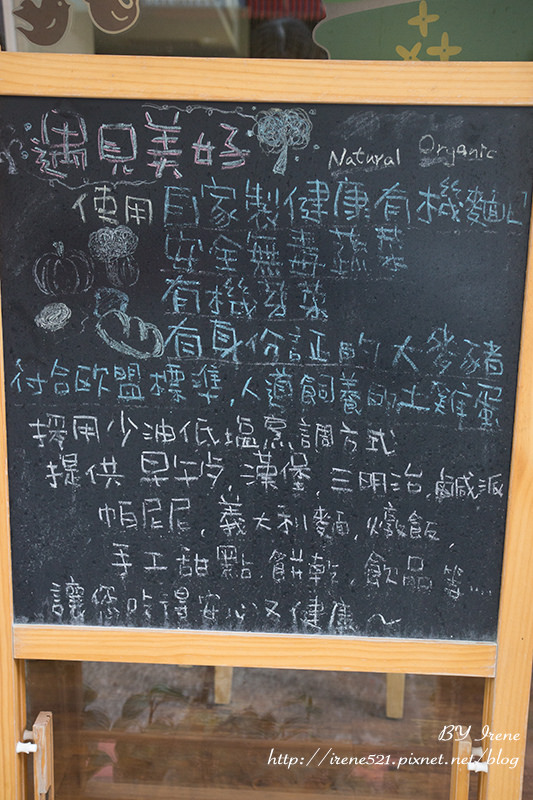 遇見美好 Natural Organic
使用 自家製健康有機麵包
安全無毒蔬菜
有機芽菜
有身份証的大麥豬
符合歐盟標準,人道飼養的土雞蛋
採用少油低塩烹調方式
提供 早午歺,漢堡,三明治,鹹派
帕尼尼,義大利麵,燉飯,
手工甜點.餅乾,飲品等....
讓您吃得安心又健康~
BY Irene
http://irene521.pixnet.net/blog